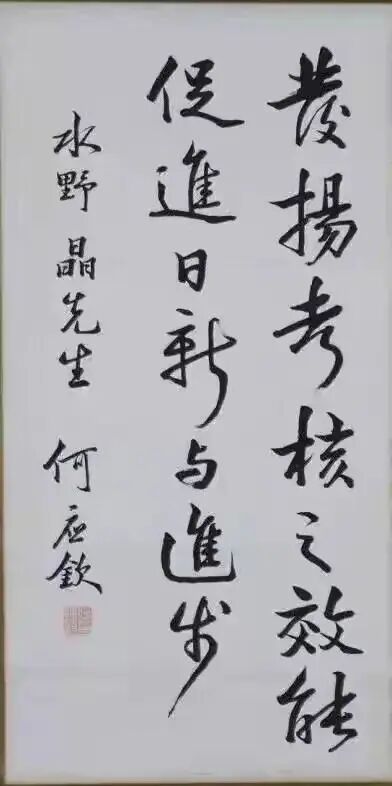 發揚考核之效能
促進日新与進步
水野晶先生 何应欽